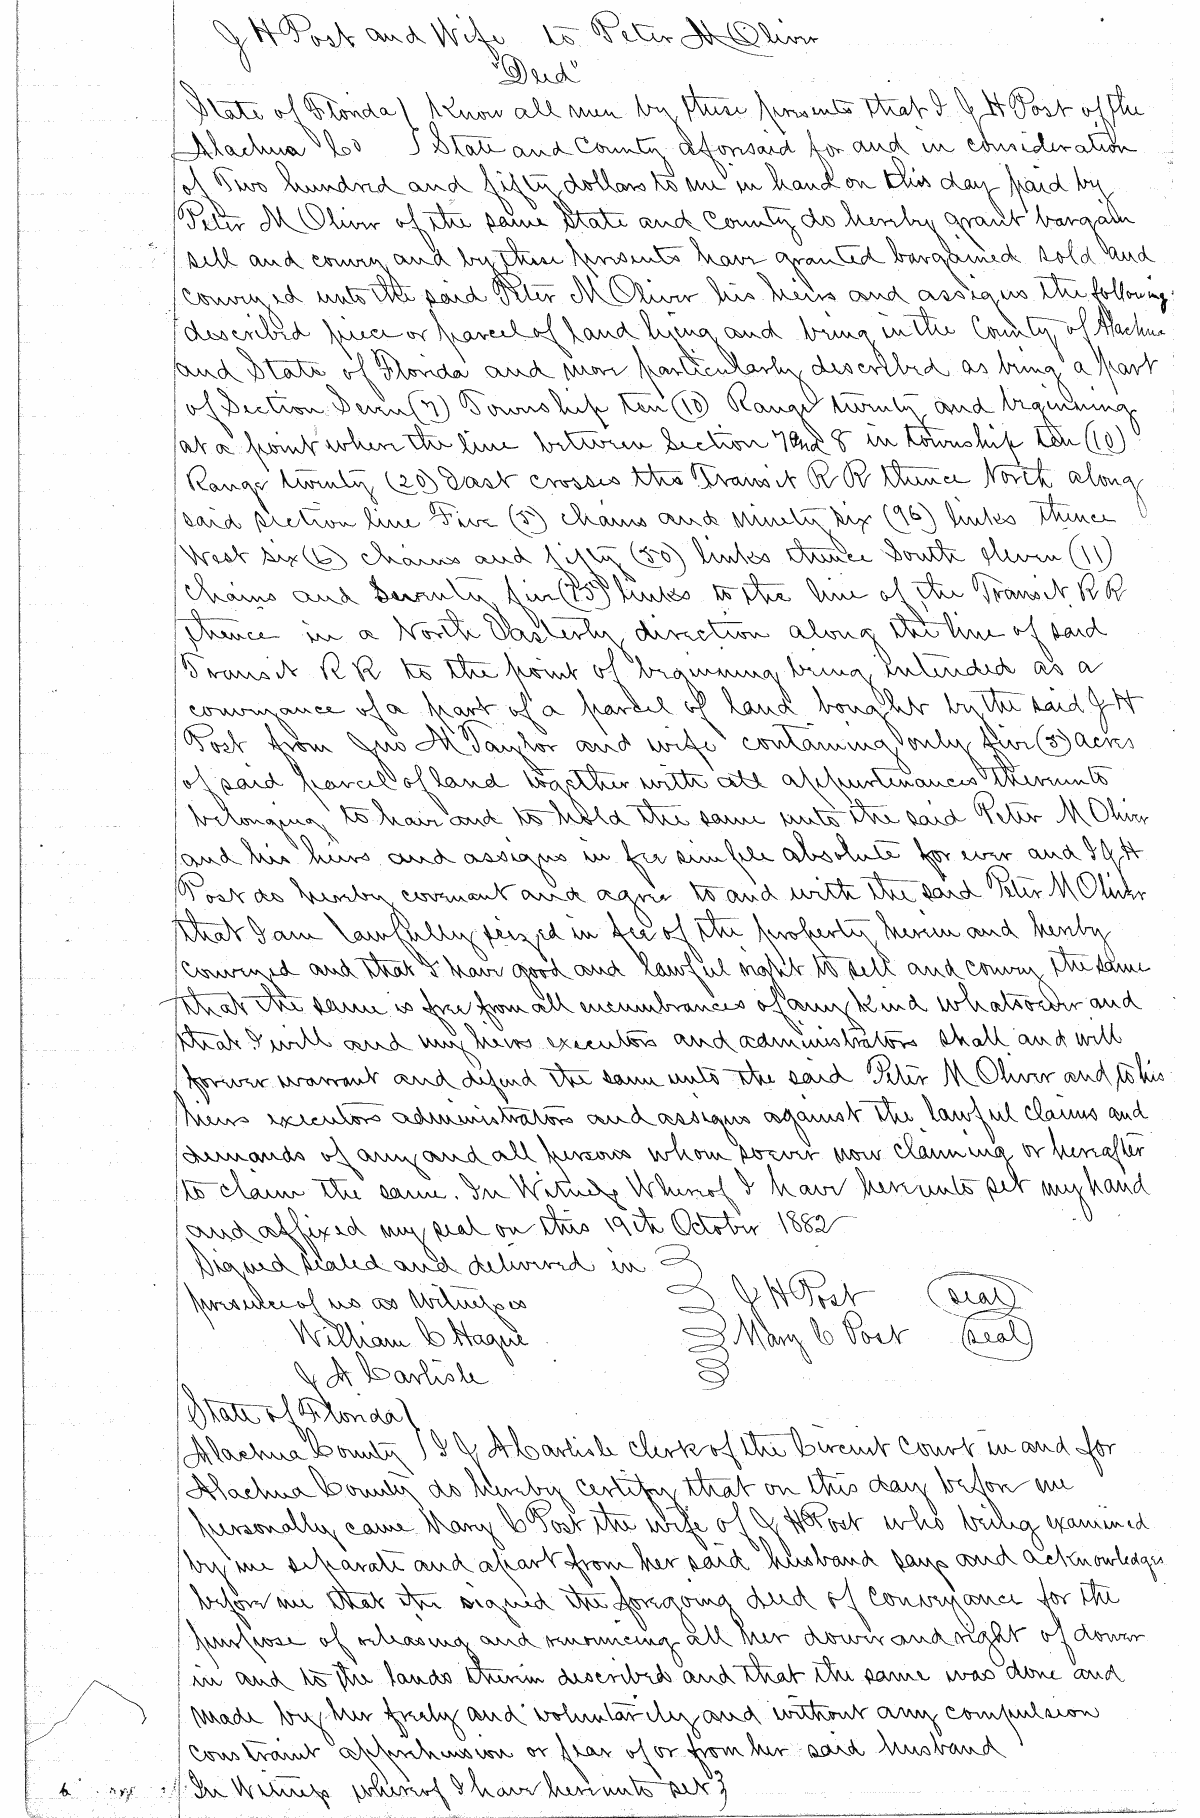 J H Post and Wife to Peter M Oliver
"Deed"
State of Florida ) Know all men by these presents that I J H Post of the
Alachua Co ) State and County aforesaid for and in consideration
of Two hundred and fifty dollars to me in hand on this day paid by
Peter M Oliver of the same State and County do hereby grant bargain
sell and convey and by these presents have granted bargained sold and
conveyed unto the said Peter M Oliver his heirs and assigns the following
described piece or parcel of land lying and being in the County of Alachua
and State of Florida and more particularly described as being a part
of Section Seven (7) Township ten (10) Range twenty and beginning
at a point where the line between Section 7 and 8 in township ten (10)
Range twenty (20) East crosses the Transit R R thence North along
said section line Five (5) chains and ninety six (96) links thence
West six (6) chains and fifty (50) links thence South eleven (11)
chains and Seventy five (75) links to the line of the Transit R R
thence in a North Easterly direction along the line of said
Transit R R to the point of beginning being intended as a
conveyance of a part of a parcel of land bought by the said J H
Post from Jno M Taylor and wife containing only five (5) acres
of said parcel of land together with all appurtenances thereunto
belonging to hair and to hold the same unto the said Peter M Oliver
and his heirs and assigns in fee simple absolute for ever and I J H
Post do hereby covenant and agree to and with the said Peter M Oliver
that I am lawfully seized in fee of the property herein and hereby
conveyed and that I have good and lawful right to sell and convey the same
that the same is free from all encumbrances of any kind whatsoever and
that I will and my heirs executors and administrators shall and will
forever warrant and defend the same unto the said Peter M Oliver and to his
heirs executors administrators and assigns against the lawful claims and
demands of any and all persons whom soever now claiming or hereafter
to claim the same. In Witness Whereof I have hereunto set my hand
and affixed my seal on this 19th October 1882
Signed sealed and delivered in
presence of us as Witnesses J H Post (seal)
William C Hague Mary C Post (seal)
J A Carlisle
State of Florida )
Alachua County ) I J A Carlisle clerk of the Circuit Court in and for
Alachua County do hereby certify that on this day before me
personally came Mary C Post the wife of J H Post who being examined
by me separate and apart from her said husband says and acknowledges
before me that she signed the foregoing deed of conveyance for the
purpose of releasing and renouncing all her dower and right of dower
in and to the lands therein described and that the same was done and
made by her freely and voluntarily and without any compulsion
constraint apprehension or fear of or from her said husband
In Witness whereof I have hereunto set